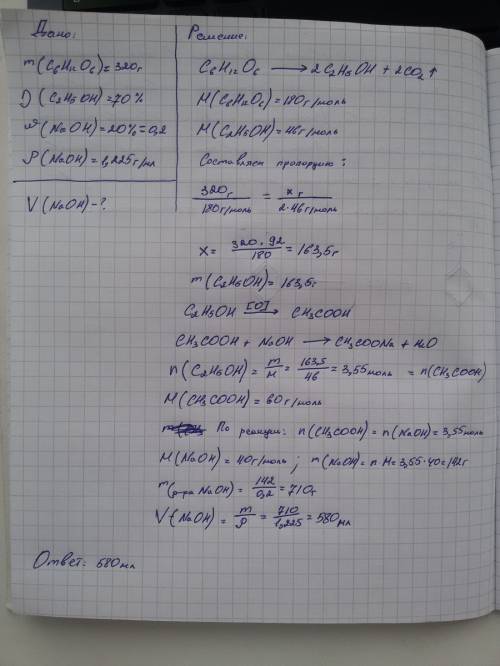 Дано:
m(C6H12O6)=320г
η(C2H5OH)=70%
ω(NaOH)=20%=0,2
ρ(NaOH)=1,225г/мл
V(NaOH)-?
Решение:
C6H12O6 ⟶ 2C2H5OH + 2CO2↑
M(C6H12O6)=180г/моль
M(C2H5OH)=46г/моль
Составляем пропорцию:
320г/180г/моль = xг/2·46г/моль
x= 320·92/180 =163,5г
m(C2H5OH)=163,5г
C2H5OH [O]⟶ CH3COOH
CH3COOH + NaOH ⟶ CH3COONa + H2O
n(C2H5OH)= m/M = 163,5/46 =3,55моль = n(CH3COOH)
M(CH3COOH)=60г/моль
По реакции: n(CH3COOH)=n(NaOH)=3,55моль
M(NaOH)=40г/моль; m(NaOH)=n·M=3,55·40=142г
m(р-ра NaOH)= 142/0,2 =710г
V(NaOH)= m/ρ = 710/1,225 =580мл
Ответ: 580мл